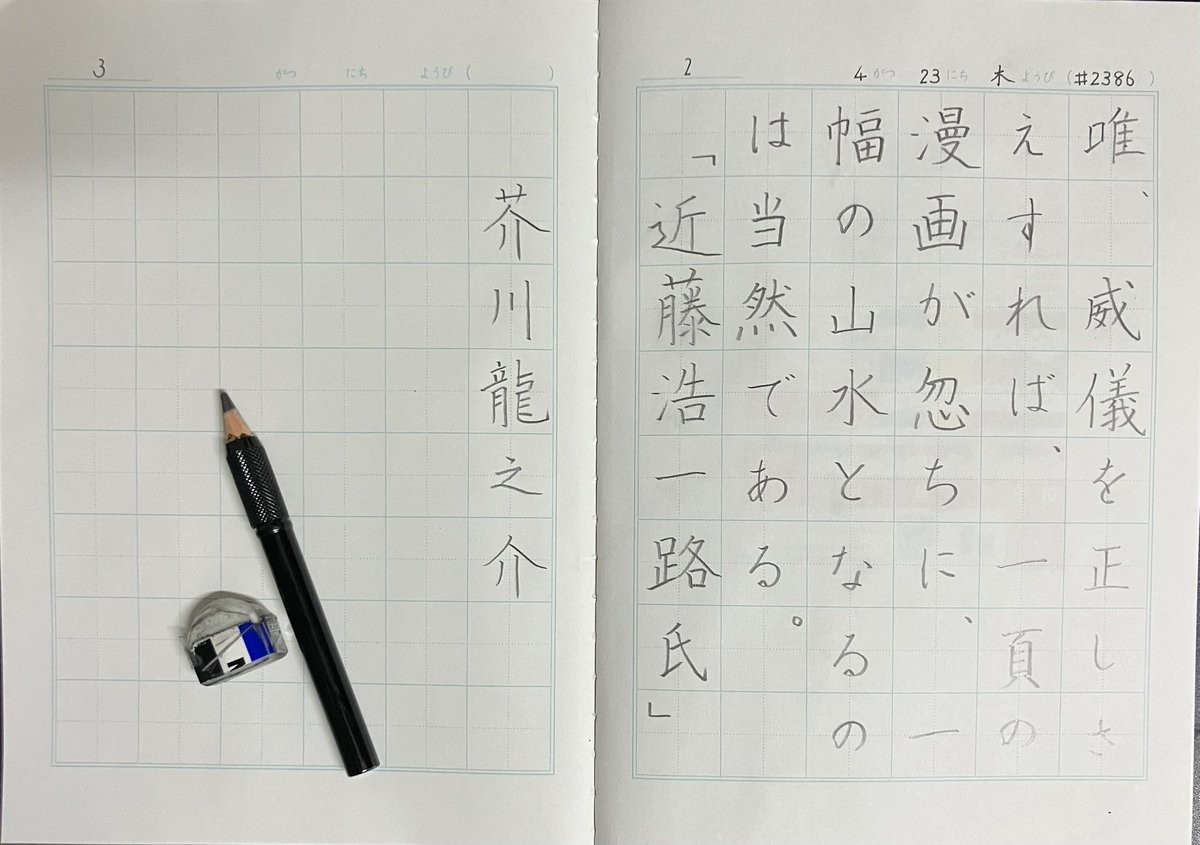 2
4がつ 23にち 木ようび (#2386)
唯、威儀を正しさ
えすれば、一頁の
漫画が忽ちに、一
幅の山水となるの
は当然である。
「近藤浩一路氏」
3
がつ にち ようび ( )
芥川龍之介